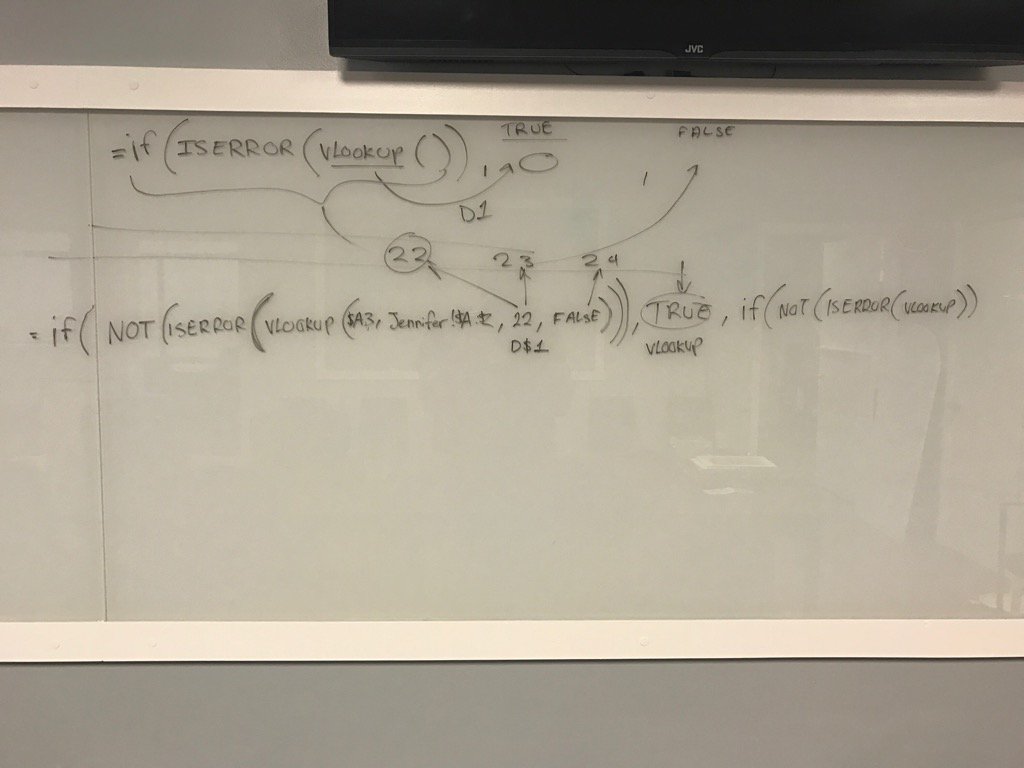 JVC
TRUE FALSE
=if(ISERROR(VLOOKUP()), ,
D1
22 23 24
=if(NOT(ISERROR(VLOOKUP($A3, Jennifer!$A:Z, 22, FALSE))), TRUE, if(NOT(ISERROR(VLOOKUP))
D$1 VLOOKUP